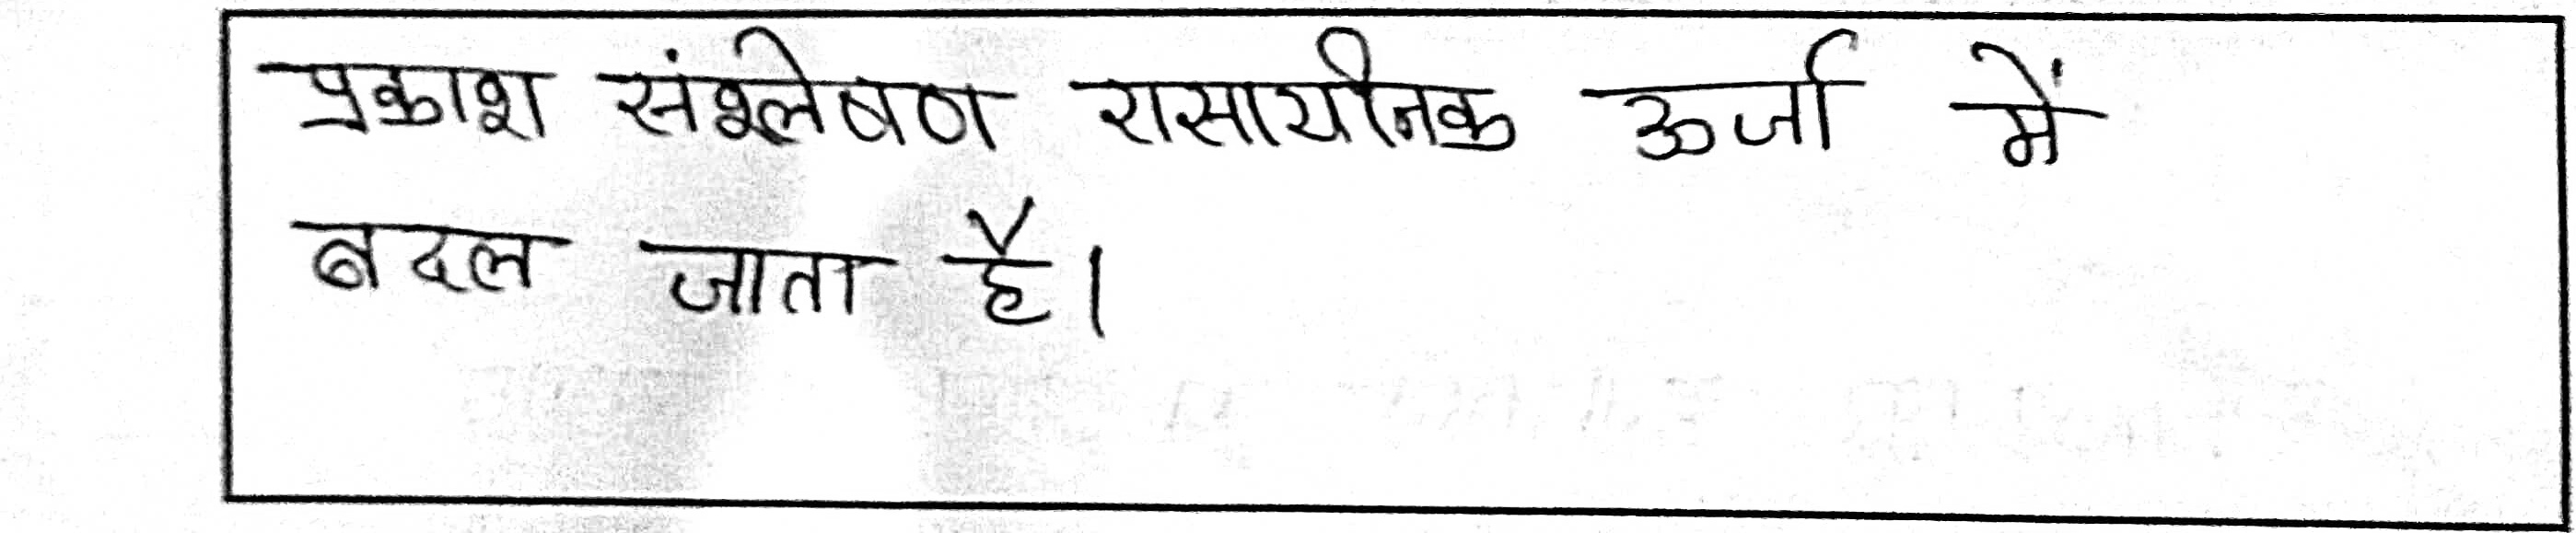 प्रकाश संश्लेषण रासायनिक ऊर्जा में
बदल जाता है।